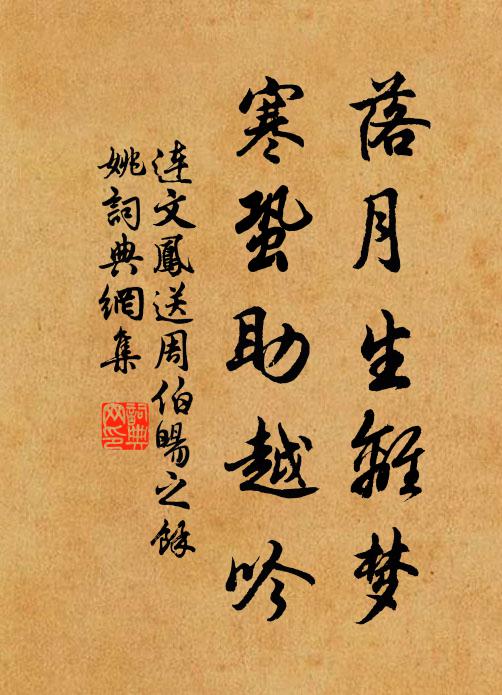 落月生離梦
寒蛩助越吟
連文鳳送周伯暘之餘
姚詞典網集
詞典
网印